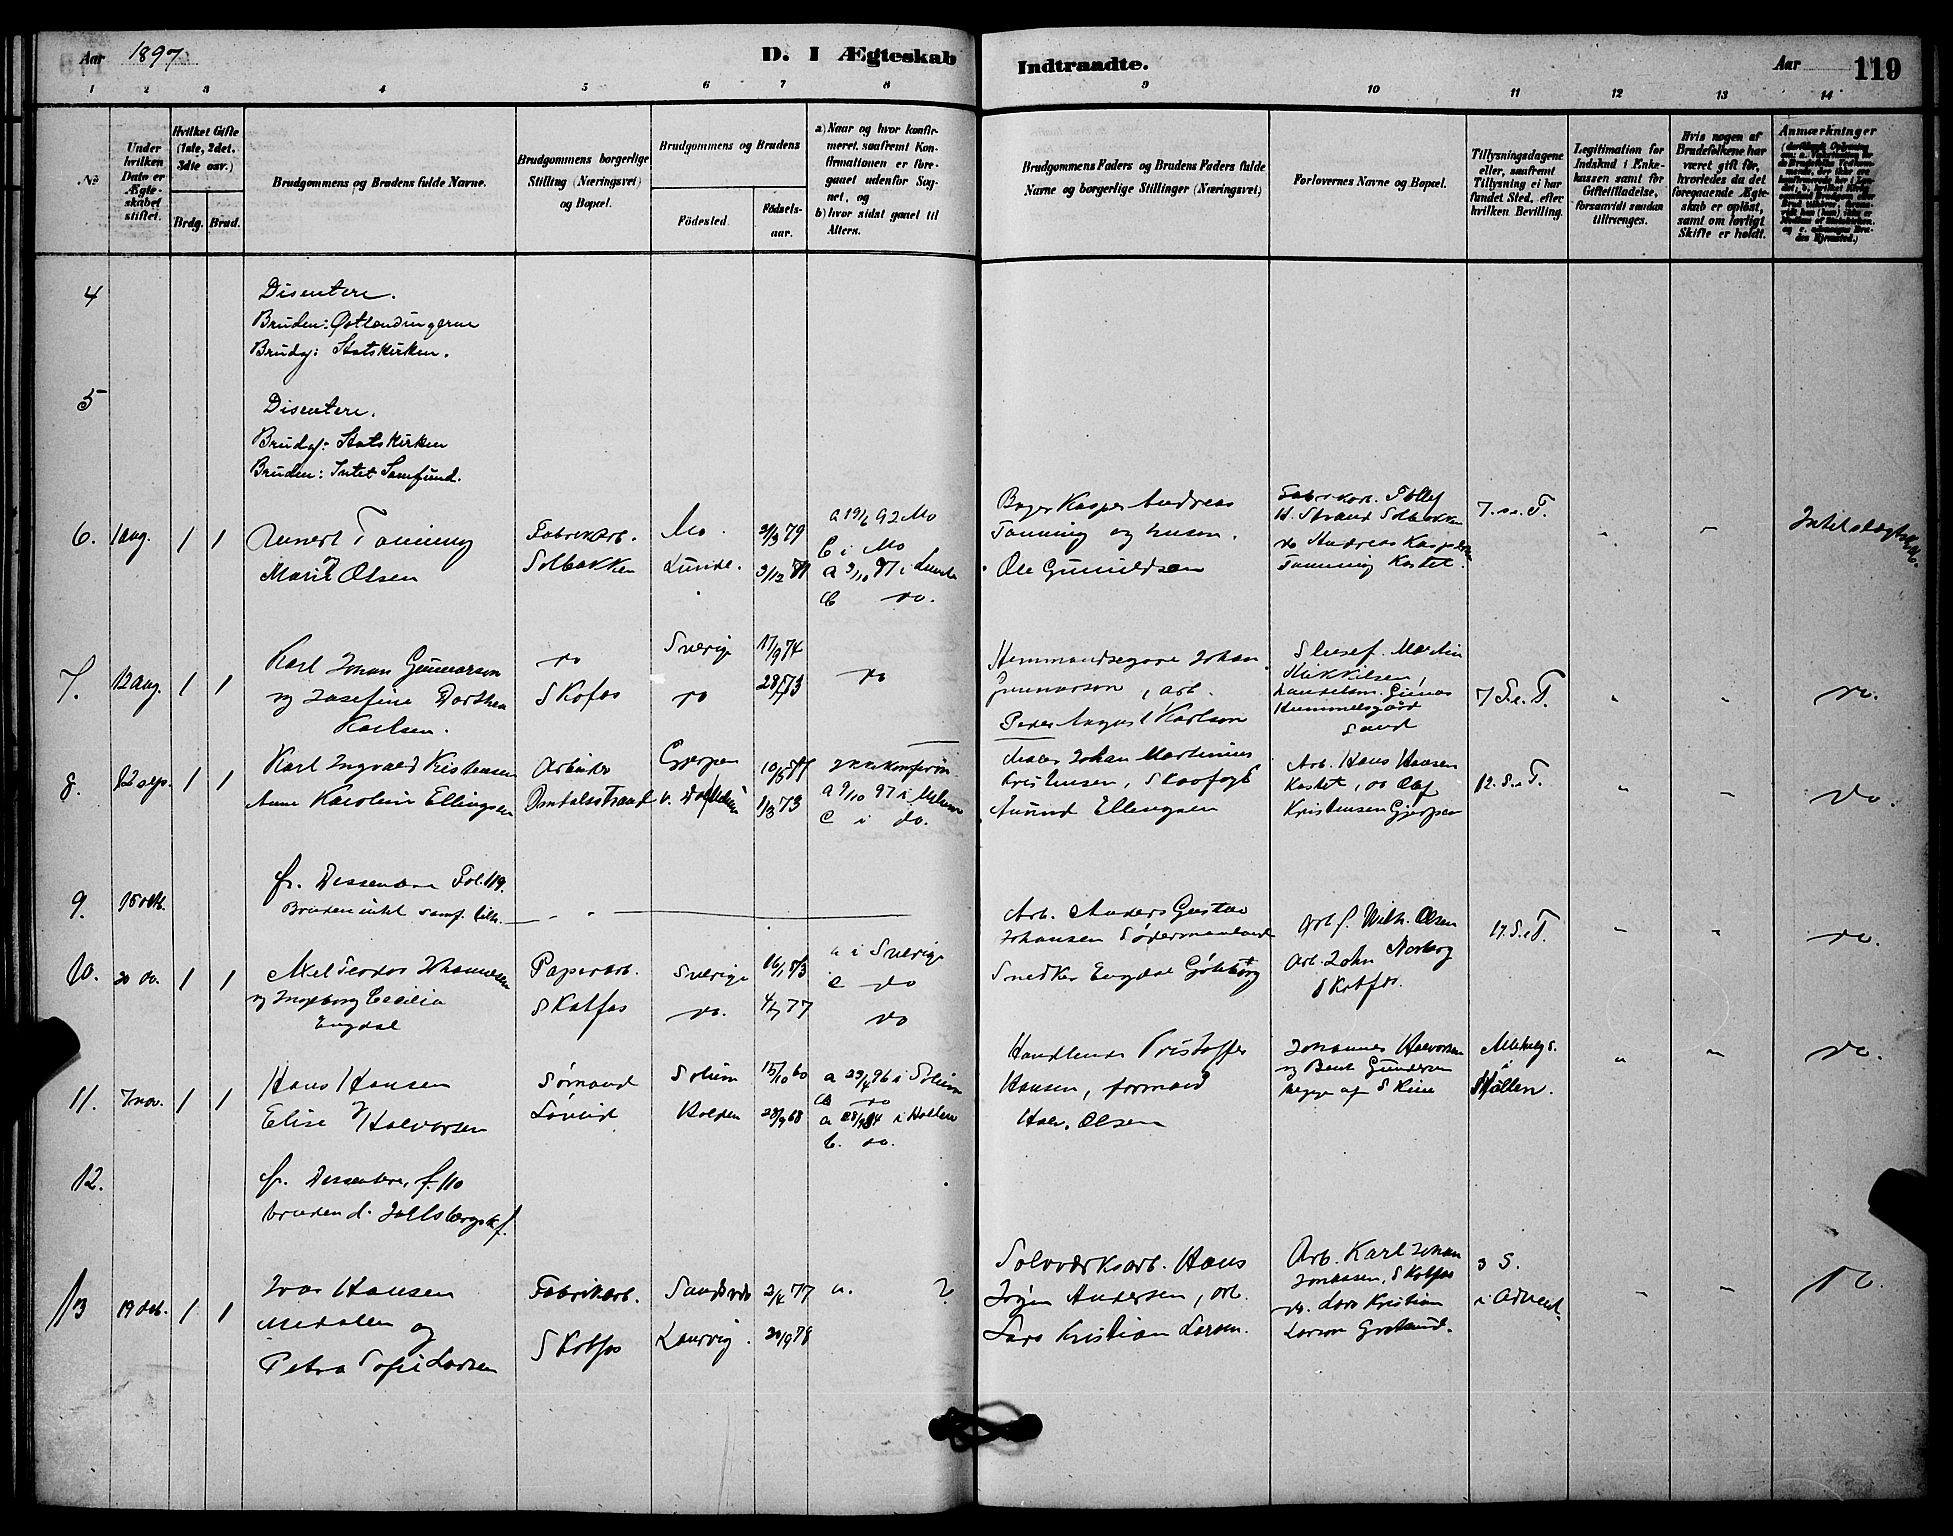 Aar 1897
D. I Ægteskab
Indtraadte.
Aar 119
1 2 3 4 5 6 7 8 9 10 11 12 13 14
№
Under hvilken Dato er Ægteskabet stiftet.
Hvilket Gifte (1ste, 2det, 3die osv.)
Brdg. Brud.
Brudgommens og Brudens fulde Navne.
Brudgommens borgerlige Stilling (Næringsvei) og Bopæl.
Brudgommens og Brudens
Fødested.
Fødselsaar.
a) Naar og hvor konfirmeret, saafremt Konfirmationen er foregaaet udenfor Sognet, og
b) hvor sidst gaaet til Alters.
Brudgommens Faders og Brudens Faders fulde Navne og borgerlige Stillinger (Næringsvei)
Forlovernes Navne og Bopæl.
Tillysningsdagene eller, saafremt Tillysning ei har fundet Sted, efter hvilken Bevilling.
Legitimation for Indskud i Enkekassen samt for Giftetilladelse, forsaavidt saadan tiltrænges.
Hvis nogen af Brudefolkene har været gift før, hvorledes da det foregaaende Ægteskab er opløst, samt om lovligt Skifte er holdt.
Anmærkninger
4
Disentere.
Bruden: Østlendingerne
Brudg: Statskirken.
5
Disentere.
Brudg: Statskirken
Bruden: Intet Samfund.
6. 1 aug. 1 1
Tanning
og
Marie Olsen
Fabrikarb.
Solbakken
Mo
Lunde.
2/3 79
a 19/6 92 Mo
b i Mo
do.
Kasper Andreas
Tanning og
Ole Gunuldsen
Fabrikarb. Tollef
H. Strand Solbakken
do Andreas Kaspersen
Tanning Kastet.
7. s. e. T.
7. 12 aug. 1 1
Karl Johan Gunnarson
og Josefine Dorthea
Karlsen.
do
Skofos
Sverige
do
17/9 74
do
Hemmandsegare Johan
Gunnarson, arb.
Peder August Karlson
Martin
Mikkelsen,
Sand
7 S. e. T.
do.
8. 12 sep. 1 1
Karl Ingvald Kristensen
Anne Karoline Ellingsen
Arbeider
Omdalsstrand
Gjerpen
10/5 77
1/3 73
ikke konfirm.
a 9/10 97 i Melum
b i do.
Johan Martinius
Kristensen, Skovfogt
Aanund Ellengsen
Arb. Hans Hansen
Kastet, og Olaf
Kristensen Gjerpen
12. S. e. T.
do.
9. 15 okt.
fr. Dissentere Fol. 119.
Bruden intet samf. tilh.
10. 20 do. 1 1
Axel Teodor Johannesen
og Ingeborg Cecilia
Engdal
Papirarb.
Skotfos
Sverige
do.
16/1 73
77
a i Sverige
b do
do
Arb. Anders Gustav
Johansen Södermanland
Snedker Engdal Göteborg
Arb. f. Wilh. Olsen
Arb. John Norberg
Skotfos.
17. S. e. T.
do.
11. 7 nov. 1 1
Hans Hansen
Elise Halvorsen
Sømand
Løvlid
Solum
Holden
15/10 60
28/9 68
a 23/4 96 i Solum
b do
a 28/9 84 i Hollen
b. do.
Handlende Kristoffer
Hansen, formand
Halv. Olsen
Johannes Halvorsen
og Bent Gundersen
begge af Skien
Allehelg. s.
do.
12.
fr. Dissentere, f. 110
bruden d.
13 19 deb. 1 1
Ivar Hansen
Medalen og
Petra Sofie Larsen
Fabrikarb.
Skotfos
Laurvig
2/4 77
20/9 78
a. ?
Solværksarb. Hans
Jørgen Andersen, arb.
Lars Kristian Larsen.
Arb. Karl Johan
Jonassen, Skotfos
do. Lars Kristian
Larsen Grotsund.
3 S.
i Advent.
do.